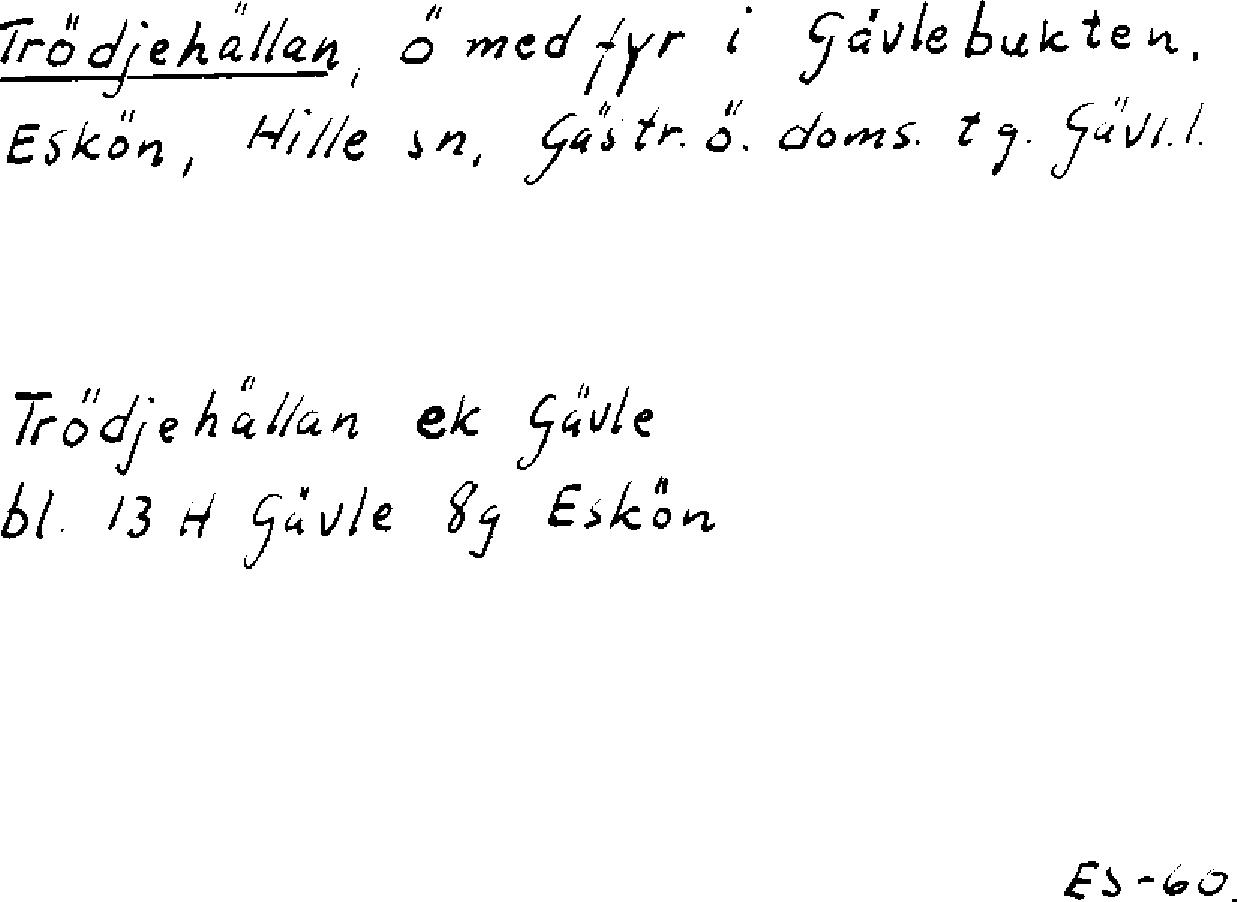 Trödjehällan, ö med fyr i Gävlebukten.
Eskön, Hille sn, Gästr. ö. doms. tg. Gävl. l.
Trödjehällan ek Gävle
bl. 13 H Gävle 8g Eskön
ES-60.